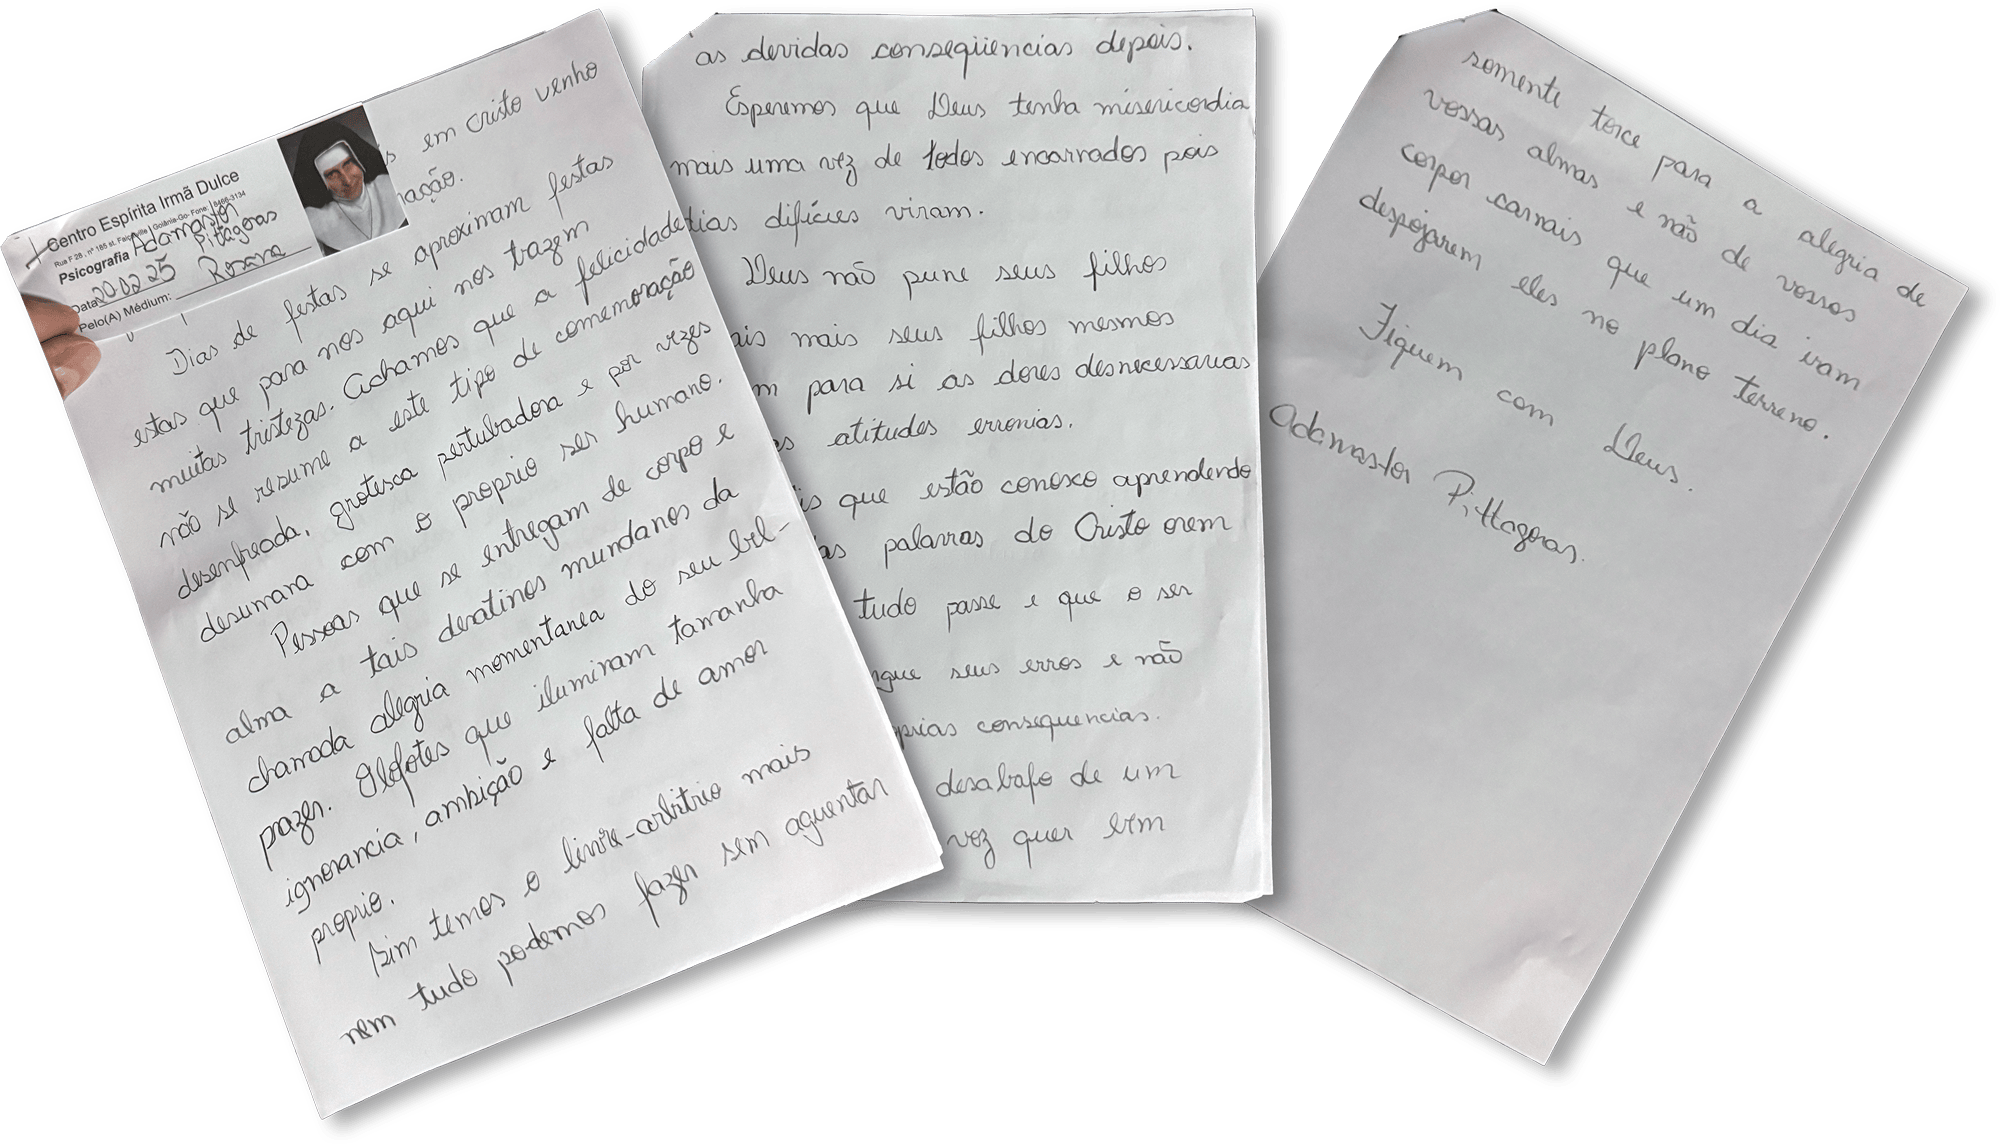 Centro Espírita Irmã Dulce
Rua F 28, nº 185 st. Faiçalville Goiânia-Go- Fone: 8466-3134
Psicografia Adamastor
Pitágoras
Data 20.02.25
Pelo(A) Médium: Rosana
s em cristo venho
ação.
Dias de festas se aproximam festas
estas que para nos aqui nos trazem
muitas tristezas. Achamos que a felicidade
não se resume a este tipo de comemoração
desenfreada, grotesca pertubadora e por vezes
desumana com o proprio ser humano.
Pessoas que se entregam de corpo e
alma a tais desatinos mundanos da
chamada alegria momentanea do seu bel-
prazer. Olofotes que iluminam tamanha
ignorancia, ambição e falta de amor
proprio.
Sim temos o livre-arbitrio mais
nem tudo podemos fazer sem aguentar
as devidas conseqüencias depois.
Esperemos que Deus tenha misericordia
mais uma vez de todos encarnados pois
dias difícies viram.
Deus não pune seus filhos
ais mais seus filhos mesmos
m para si as dores desnecessarias
as atitudes erronias.
is que estão conosco aprendendo
as palavras do Cristo orem
tudo passe e que o ser
ngue seus erros e não
oprias consequencias.
desabafo de um
voz quer bem
somente torce para a alegria de
vossas almas e não de vossos
corpos carnais que um dia iram
despojarem eles no plano terreno.
Fiquem com Deus.
Adamastor Pittagoras.